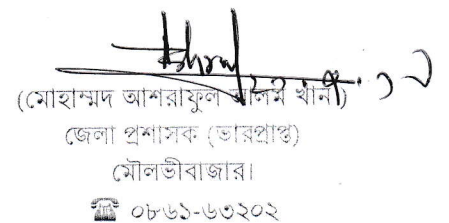 (মোহাম্মদ আশরাফুল আলম খান)
জেলা প্রশাসক (ভারপ্রাপ্ত)
মৌলভীবাজার।
☎ ০৮৬১-৬৩২০২